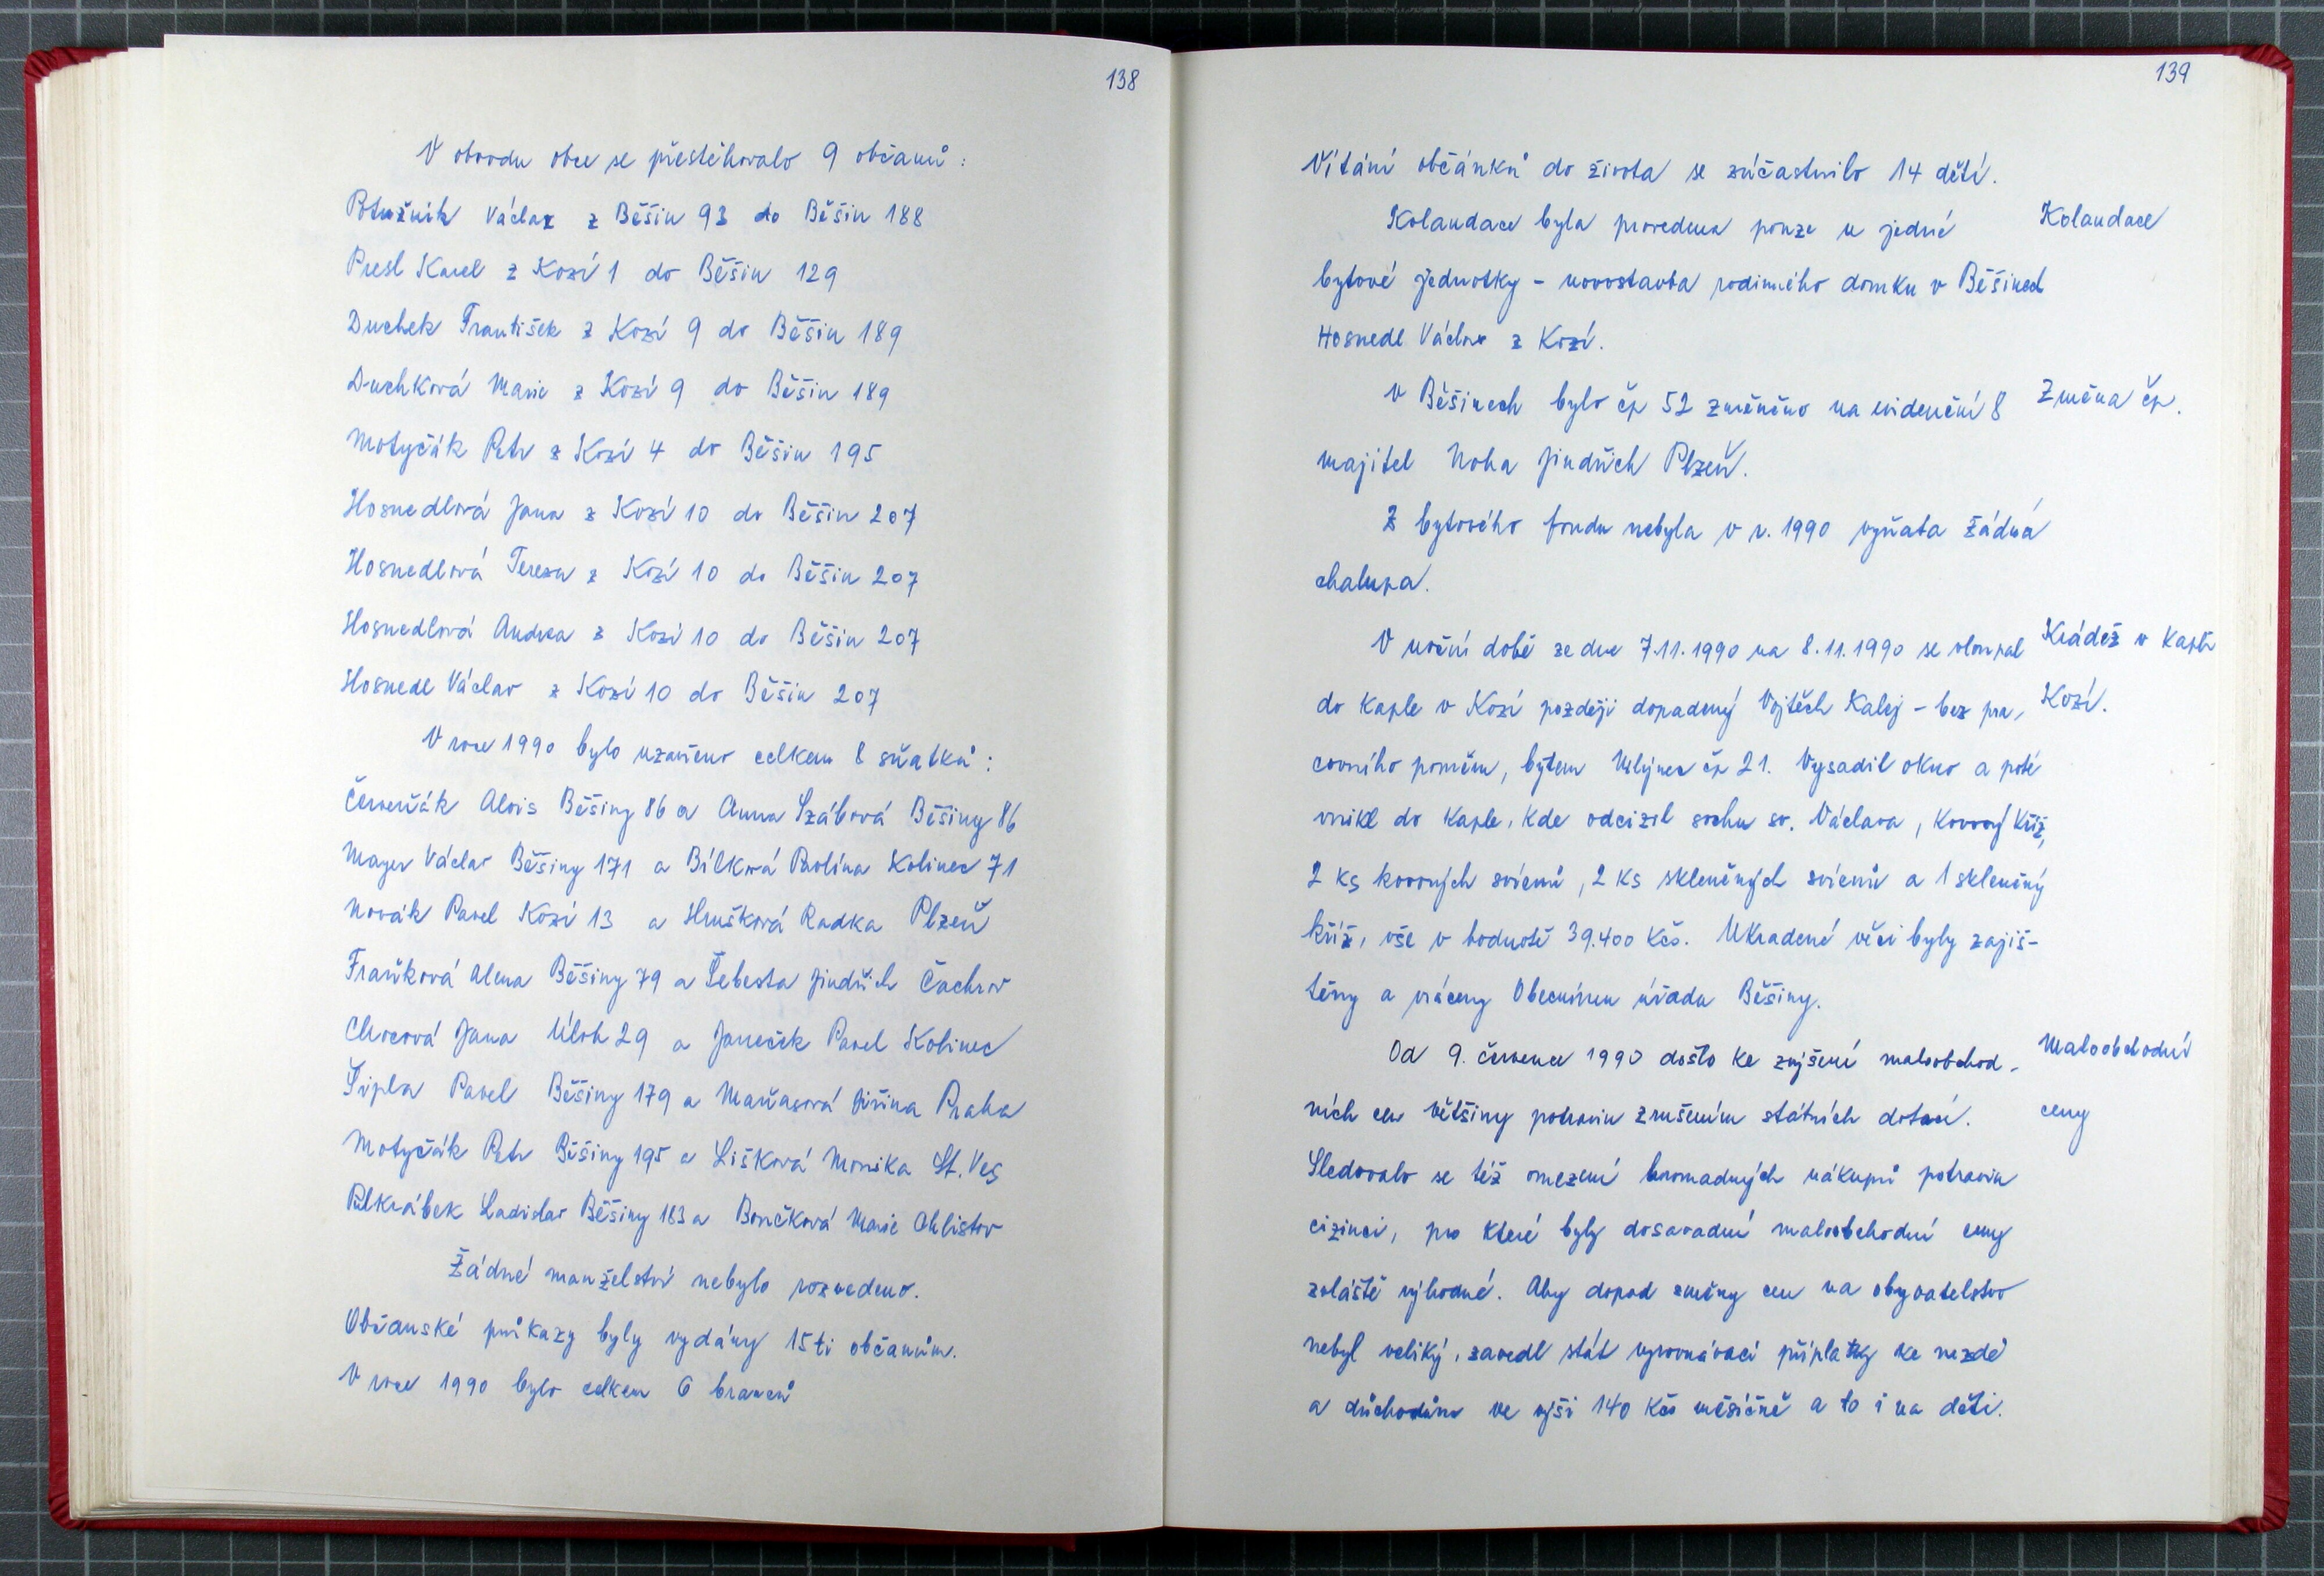 138
V obvodu obce se přestěhovalo 9 občanů:
Potužník Václav z Běšin 93 do Běšin 188
Presl Karel z Kozí 1 do Běšin 129
Duchek František z Kozí 9 do Běšin 189
Duchková Marie z Kozí 9 do Běšin 189
Motyčák Petr z Kozí 4 do Běšin 195
Hosnedlová Jana z Kozí 10 do Běšin 207
Hosnedlová Tereza z Kozí 10 do Běšin 207
Hosnedlová Andrea z Kozí 10 do Běšin 207
Hosnedl Václav z Kozí 10 do Běšin 207
V roce 1990 bylo uzavřeno celkem 8 sňatků:
Červeňák Alois Běšiny 86 a Anna Szábová Běšiny 86
Mayer Václav Běšiny 171 a Bílková Pavlína Kolinec 71
Novák Pavel Kozí 13 a Hrušková Radka Plzeň
Fraňková Alena Běšiny 79 a Šebesta Jindřich Čachrov
Chocová Jana Úloh 29 a Janeček Pavel Kolinec
Šipla Pavel Běšiny 179 a Maňasová Jiřina Praha
Motyčák Petr Běšiny 195 a Lišková Monika St. Ves
Pulkrábek Ladislav Běšiny 183 a Bončková Marie Ohlistov
Žádné manželství nebylo rozvedeno.
Občanské průkazy byly vydány 15ti občanům.
V roce 1990 bylo celkem 6 branců
139
Vítání občánků do života se zúčastnilo 14 dětí.
Kolaudace byla provedena pouze u jedné
Kolaudace
bytové jednotky - novostavba rodinného domku v Běšinech
Hosnedl Václav z Kozí.
v Běšinech bylo čp 52 změněno na evidenční 8
Změna čp.
majitel Noha Jindřich Plzeň.
Z bytového fondu nebyla v r. 1990 vyňata žádná
chalupa.
V noční době ze dne 7.11.1990 na 8.11.1990 se vloupal
Krádež v kapli
do kaple v Kozí později dopadený Vojtěch Kalej - bez pra-
Kozí.
covního poměru, bytem Mlýnec čp 21. Vysadil okno a poté
vnikl do kaple, kde odcizil sochu sv. Václava, kovový kříž,
2 ks kovových svícnů, 2 ks skleněných svícnů a 1 skleněný
kříž, vše v hodnotě 39.400 Kčs. Ukradené věci byly zajiš-
těny a vráceny Obecnímu úřadu Běšiny.
Od 9. července 1990 došlo ke zvýšení maloobchod-
Maloobchodní
ních cen většiny potravin zrušením státních dotací.
ceny
Sledovalo se též omezení hromadných nákupů potravin
cizinci, pro které byly dosavadní maloobchodní ceny
zvláště výhodné. Aby dopad změny cen na obyvatelstvo
nebyl veliký, zavedl stát vyrovnávací příplatky ke mzdě
a důchodům ve výši 140 Kčs měsíčně a to i na děti.